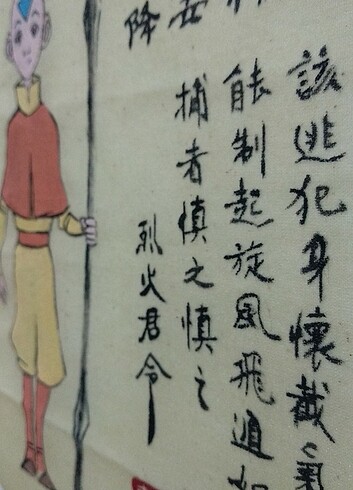 該逃犯身懷截氣
能制起旋風飛遁如
捕者慎之慎之
降
烈火君令